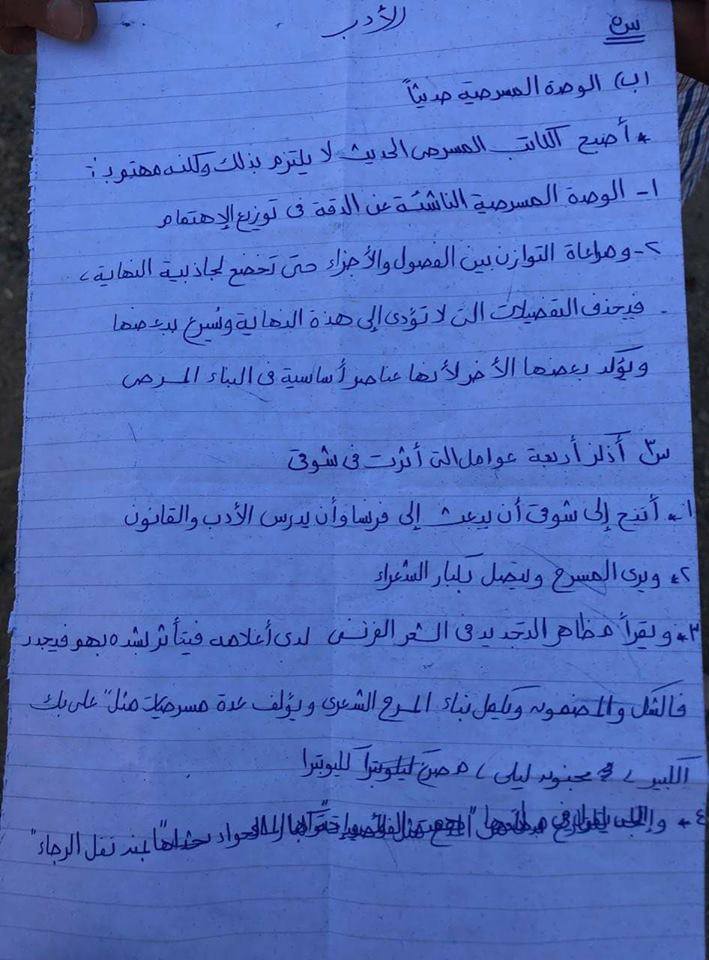 الأدب
س٥
(ب) الوحدة المسرحية حديثاً
* أصبح الكاتب المسرحى الحديث لا يلتزم بذلك ولكنه مهتم بـ :
١- الوحدة المسرحية الناشئة عن الدقة فى توزيع الإهتمام
٢- ومراعاة التوازن بين الفصول والأجزاء حتى تخضع لجاذبية النهاية ،
فيحذف التفصيلات التى لا تؤدى إلى هذه النهاية ويُسرع ببعضها
ويؤكد بعضها الأخر لأنها عناصر أساسية فى البناء المسرحى
س٣ أذكر أربعة عوامل التى أثرت فى شوقى
١* أتيح إلى شوقى أن يبعث إلى فرنسا وأن يدرس الأدب والقانون
٢* ويرى المسرح ويتصل بكبار الشعراء
٣* ويقرأ مظاهر التجديد فى الشعر الفرنسى لدى أعلامه فيتأثر بشده بهو فيجدد
فالشكل والمضمون ويكمل بناء المسرح الشعرى ويؤلف عدة مسرحيات مثل " على بك
الكبير ، مجنون ليلى ،
٤* الرجاء"